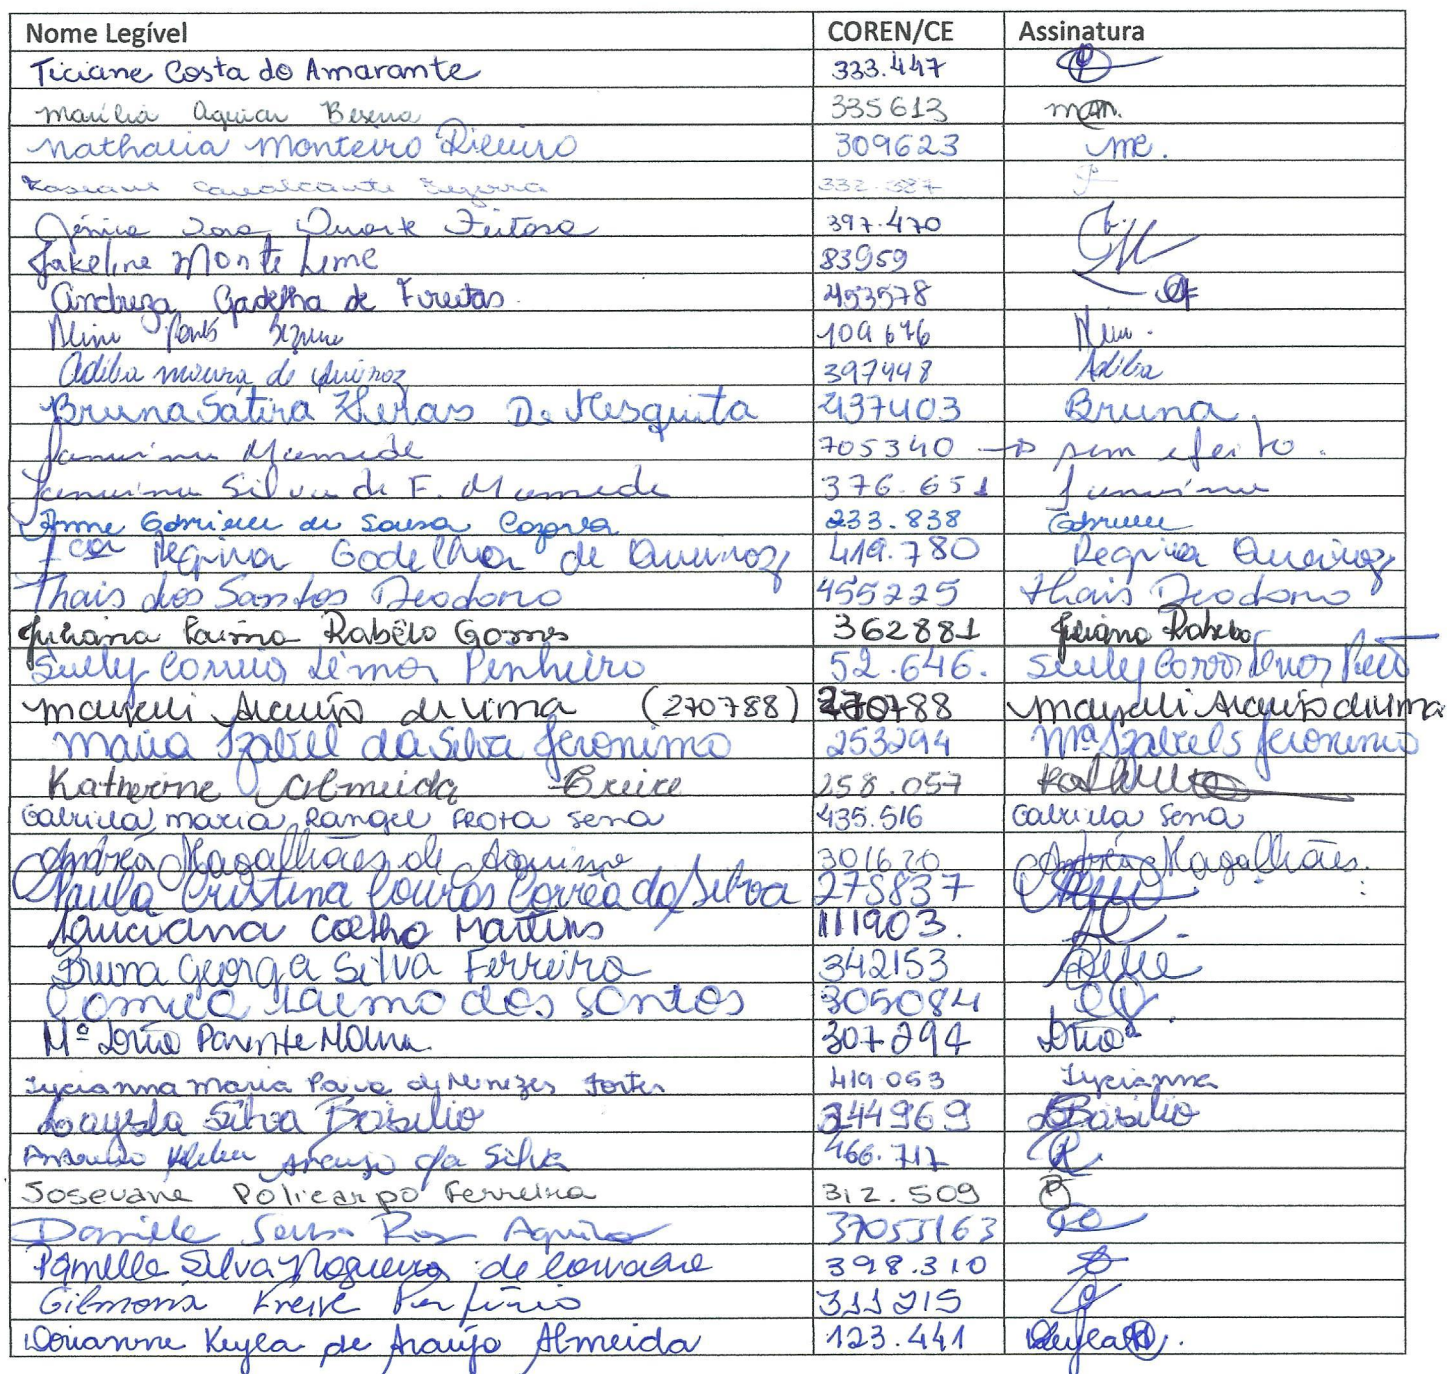 Nome Legível COREN/CE Assinatura
Ticiane Costa do Amarante 333.447
Marília Aguiar Beserra 335613
Nathalia Monteiro Ribeiro 309623
Cavalcante Bezerra 332.387
Duarte Feitosa 397.470
Jakeline Monte Lima 83959
Andreza Gadelha de Freitas 453578
109676
Adília Moura de Queiroz 397448 Adília
Bruna Sátira De Mesquita 437403 Bruna
Janaína Mamede 705340 → sem efeito.
Janaína Silva de F. Mamede 376.651 Janaína
Anne Gabrielle de Sousa 233.838 Gabrielle
Fca Regina Gadelha de Queiroz 419.780 Regina Queiroz
Thais dos Santos Deodoro 455225 Thais Deodoro
Juliana Rabelo Gomes 362881 Juliana Rabelo
Suely Correia Lemos Pinheiro 52.646. Suely
Araujo de Lima (270788) 270788 Araujo de Lima
Maria Izabel da Silva Jeronimo 253294 Mª Izabel S Jeronimo
Katherine Almeida Freire 258.057
Gabriela Maria Rangel Prota Sena 435.516 Gabriela Sena
Andréa Magalhães de Aquino 301620 Andréa Magalhães.
Paula Cristina Couras Corrêa da Silva 275837
Luciana Coelho Martins 111903.
Bruna Georga Silva Ferreira 342153
dos Santos 305084
Mª Parente 307294
Lycianna Maria Paiva de Menezes Fortes 419.053 Lycianna
Laysla Silva Basilio 244969 LBasilio
Antonio Araujo da Silva 466.717
Josevane Policarpo Ferreira 312.509
Danielle Sousa 37055163
Pamella Silva Nogueira de 398.310
Gilmara Freire Porfírio 311215
Dorianne Keyla de Araújo Almeida 123.441 Keyla